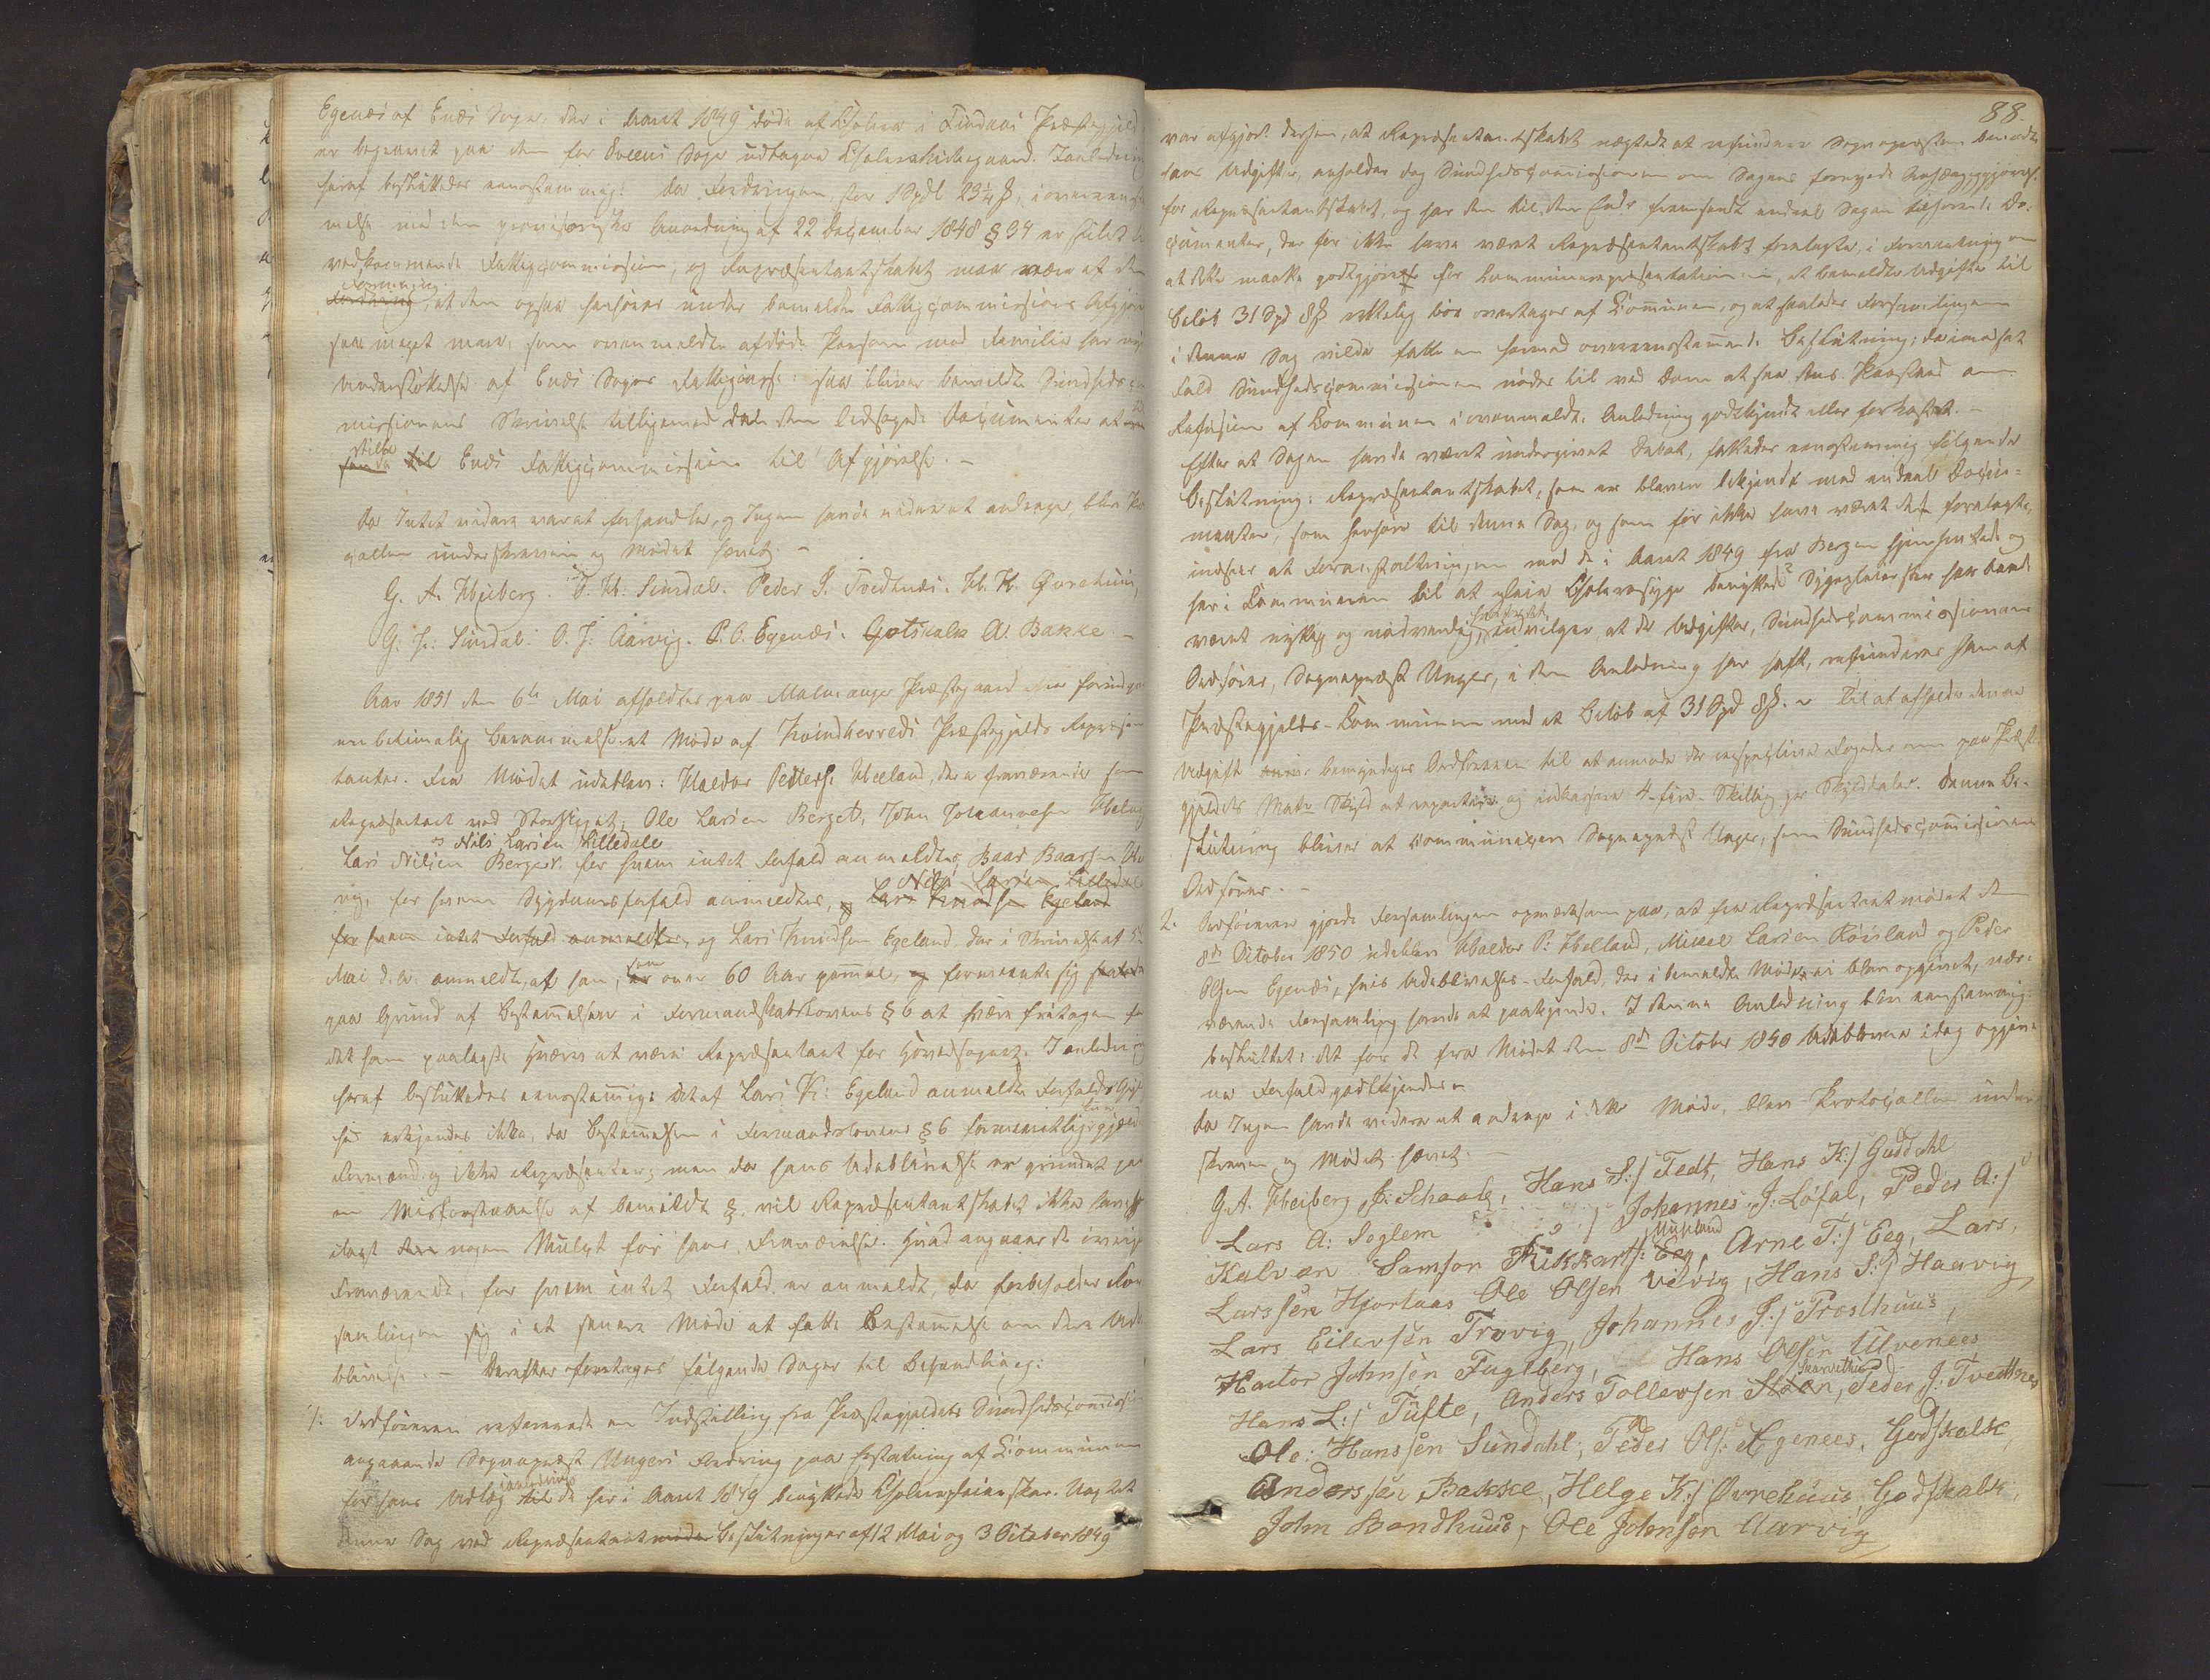 Egenæs af Enæs Sogn, der i Aaret 1849 døde af Cholera i Findaas Præstegjeld
er begravet paa den for Sogn udtagne Cholerakirkegaard. I Anledning
heraf besluttedes eenstemmig: da Fordringen, stor 1 Spdl 23½ ß, i overeensstem-
melse med den provisoriske Anordning af 22 December 1848 § 34 er stilet til
vedkommende Fattigcommission, og Repræsentantskabet maa være af den
Formening, at den ogsaa henhører under bemeldte Fattigcommissions Afgjørelse,
saa meget mere, som ovenmeldte afdøde Person med Familie har nydt
Understøttelse af Enæs Sogns Fattigcasse: saa bliver bemeldte Sundhedscom-
missions Skrivelse tilligemed de den ledsagende Documenter at
stille til Enæs Fattigcommission til Afgjørelse. –
Da Intet videre var at forhandle, og Ingen havde videre at andrage, blev Pro-
tocollen underskreven og Mødet hævet. –
G. A. Heiberg. O. H. Sundal. Peder J. Tvedtnæs. H. K. Øvrehuus,
G. J. Sundal. O. J. Aarvig. P. O. Egenæs. Gotskalk A. Bakke. –
Aar 1851 den 6te Mai afholdtes paa Malmanger Præstegaard efter forudgaa-
ende betimelig Berammelse et Møde af Kvindherreds Præstegjelds Repræsen-
tanter. Fra Mødet udebleve: Haldor Peders. Heland, der er fraværende som
Repræsentant ved Storthinget; Ole Larsen Berget, John Johannesen
og Nils Larsen Lilledale
Lars Nilsen Berget. for hvem intet Forfald anmeldtes, Baar Baarsen
vig, for hvem Sygdomsforfald anmeldtes, og Lars Knudsen Egeland
for hvem intet Forfald anmeldtes, og Lars Knudsen Egeland, der i Skrivelse af 5te
Mai d. A. anmeldte, at han, som er over 60 Aar gammel, og formeente sig
paa Grund af Bestemmelsen i Formandskabslovens § 6 at være fritagen for
det ham paalagte Hverv at være Repræsentant for Hovedsognet. I Anledning
heraf besluttedes eenstemmig: det af Lars K: Egeland anmeldte Forfald
erkjendes ikke, da Bestemmelsen i Formandslovens § 6 formeentligen kun gjælder
Formænd og ikke Repræsentanter; men da hans Udeblivelse er grundet paa
en Misforstaaelse af bemeldte §, vil Repræsentantskabet ikke have
ilagt nogen Mulct for hans Fraværelse. Hvad angaaer de øvrige
Fraværende, for hvem intet Forfald er anmeldt, da forbeholder For-
samlingen sig i et senere Møde at fatte Bestemmelse om deres Ude-
blivelse. – Derefter foretoges følgende Sager til Behandling:
1: Ordføreren refererede en Indstilling fra Præstegjeldets Sundhedscommission
angaaende Sognepræst Ungers Fordring paa Erstatning af Communen
for hans Udlæg i anledning de her i Aaret 1849 benyttede Cholerapleiersker. Uagtet
denne Sag ved Repræsentantmøde Beslutninger af 12 Mai og 3 October 1849
88.
var afgjort derhen, at Repræsentantskabet nægtede at refundere Sognepræsten bemeldte
hans Udgifter, anholder dog Sundhedscommissionen om Sagens fornyede
for Repræsentantskabet, og har den til den Ende fremsendt endeel Sagen vedkommende Do-
cumenter, der før ikke have været Repræsentantskabet forelagte, i Formening om
at det maatte godtgjøres for Communerepræsentationen, at bemeldte Udgifter til
Beløb 31 Spd 8 ß rettelig bør overtages af Communen, og at saaledes Forsamlingen
i denne Sag vilde fatte en hermed overeensstemmende Beslutning; da i modsat
Fald Sundhedscommissionen nødes til ved Dom at faae dens Paastand om
Refusion af Communen i ovenmeldte Anledning godkjendt eller forkastet. –
Efter at Sagen havde været undergivet Debat, fattedes eenstemmig følgende
Beslutning: Repræsentantskabet, som er bleven bekjendt med endeel Docu-
menter, som henhøre til denne Sag, og som før ikke have været det forelagte,
indseer at Foranstaltningen med de i Aaret 1849 fra Bergen hidhentede og
her i Communen til at pleie Cholerasyge benyttede Sygepleiersker har baade
været nyttig og nødvendig, indvilger at de Udgifter, Sundhedscommissionens
Ordfører, Sognepræst Unger, i den Anledning har havt, refunderes ham af
Præstegjelds-Communen med et Beløb af 31 Spd 8 ß. – Til at afholde denne
Udgift bemyndiges Ordføreren til at anmode de respective Fogder om paa Præste-
gjeldets Matr. Skyld at repartere og indkassere 4-fire-Skilling pr Skylddaler. Denne Be-
slutning bliver at communicere Sognepræst Unger, som Sundhedscommissionens
Ordfører. –
2. Ordføreren gjorde Forsamlingen opmærksom paa, at fra Repræsentantmødet den
8de October 1850 udebleve Haldor P: Helland, Mikkel Larsen Røisland og Peder
Olsen Egenæs, hvis Udeblivelses-Forfald, der i bemeldte Møde ei blev opgivet, nær-
værende Forsamling havde at paakjende. I denne Anledning blev eenstemmig
besluttet: det for de fra Mødet den 8de October 1850 Udeblevne idag opgiv-
ne Forfald godkjendes.
Da Ingen havde videre at andrage i dette Møde, blev Protocollen under-
skreven og Mødet hævet. –
G. A. Heiberg J: Schaale, Hans S:/ Tedt, Hans K:/ Guddahl
Lars A: Seglem Johannes J: Løfal, Peder A:/
Kalvan Samson Rikkarts: Eeg, Musland Arne T:/ Eeg, Lars,
Larssen Hjortaas Ole Olsen Vilvig, Hans S:/ Haavig
Lars Eilevsen Trovig, Johannes J:/ Prosthuus,
Hactor Johnsen Fuglberg, Hans Olsen Ulvenees
Hans L:/ Tufte, Anders Tollevsen Støen, Skarvethun Peder J: Tvedtnes
Ole: Hanssen Sundahl, Peder Ols: Ægenees, Godskalk
Anderssen Bakke, Helge K:/ Øvrehuus, Godskalk
John Bondhuus, Ole Johnson Aarvig